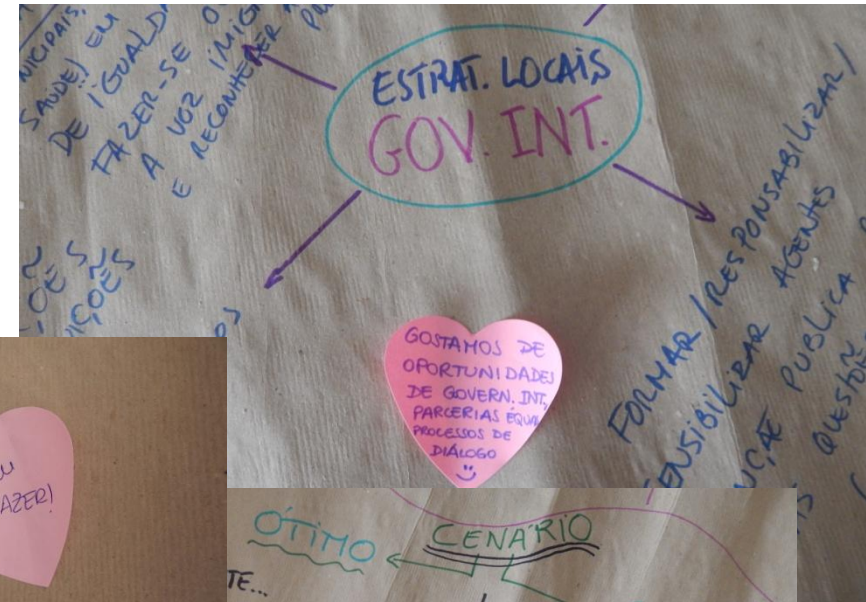 NICIPAIS,
SAÚDE) EM
DE IGUALD
FAZER-SE O
A VOZ IMIG
E RECONHECER
ESTRAT. LOCAIS
GOV. INT.
FORMAR / RESPONSABILIZAR /
SENSIBILIZAR AGENTES
PUBLICA
QUESTÕE
ÕES
IÇÕES
OS
GOSTAMOS DE
OPORTUNIDADES
DE GOVERN. INT.,
PARCERIAS EQUA
PROCESSOS DE
DIÁLOGO
AZER!
ÓTIMO
CENÁRIO
TE...